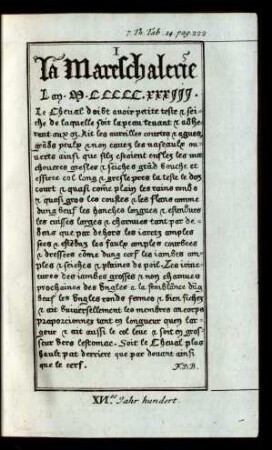 7. Th. Tab. 14. pag. 222
I
La Mareschalerie
Lan. M. CCCCC. XXXIII.
Le Cheval doibt avoir petite teste & sei-
che de laquelle soit la peau tenant & adhe-
rent aux oz. Ait les oureilles courtes & agues,
grãds yeulx & non caues les naseaulx ou-
uerts ainsi que silz estoient enflez les ma-
choueres gresles & seiches grãd bouche et
efforce col long & gresle pres la teste le doz
court & quasi come plain les rains rondz
& quasi gros les coustes & les flans comme
dung beuf les hanches longues & estendues
les cuisses larges & charnues tant par de-
dens que par dehors les iaretz amples
secs & estẽduz les faulx amples courbees
& dressees cõme dung cerf les iambes am-
ples & seiches & plaines de poil. Les ioinc-
tures des iambes grosses & non charnues
prochaines des ungles a la semblãce dũg
beuf les ungles rondz fermes & bien fichez
& ait universellement les membres du corps
proporcionnez tant en longueur quen lar-
geur & ait aussi le col leue & soit en gros-
seur vers lestomac. Soit le Cheval plus
hault par derriere que par devant ainsi
que le cerf.
F.B.B.
XVI.tes Jahr hundert.